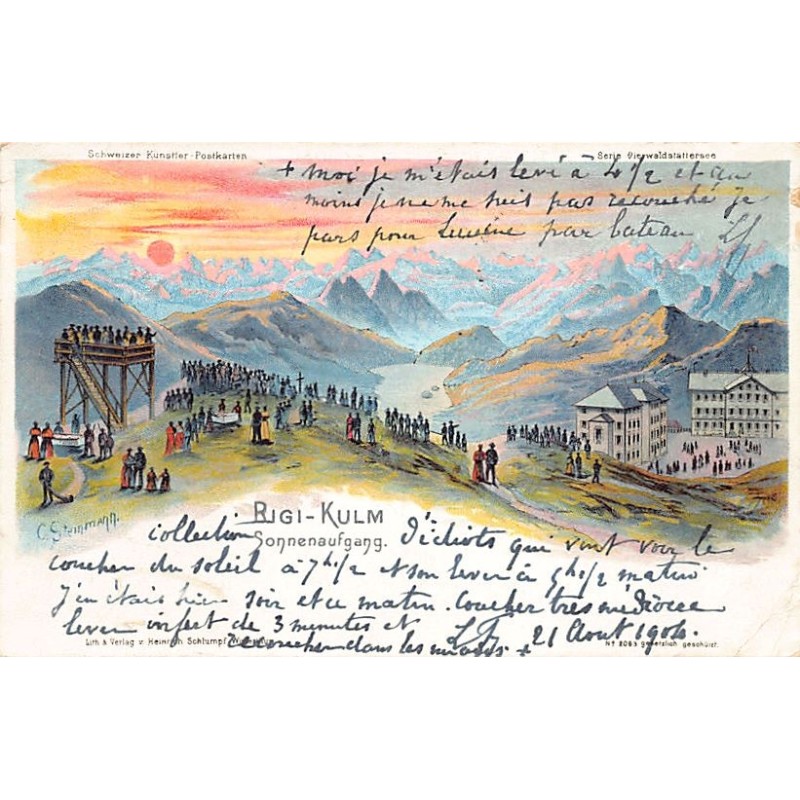 Schweizer Künstler-Postkarten
Serie Vierwaldstättersee
+ moi je m'étais levé à 4 1/2 et au
moins je ne me suis pas recouché je
pars pour Lucerne par bateau
C. Steinmann.
RIGI-KULM
Sonnenaufgang.
collection d'idiots qui vont voir le
coucher du soleil à 7h 1/2 et son lever à 5h 1/2 matin
J'en étais hier soir et ce matin. Coucher très médiocre
lever infect de 3 minutes et
recoucher dans les nuages +
21 Aout 1904.
Lith & Verlag v. Heinrich Schlumpf, Winterthur
No 2083 gesetzlich geschützt.